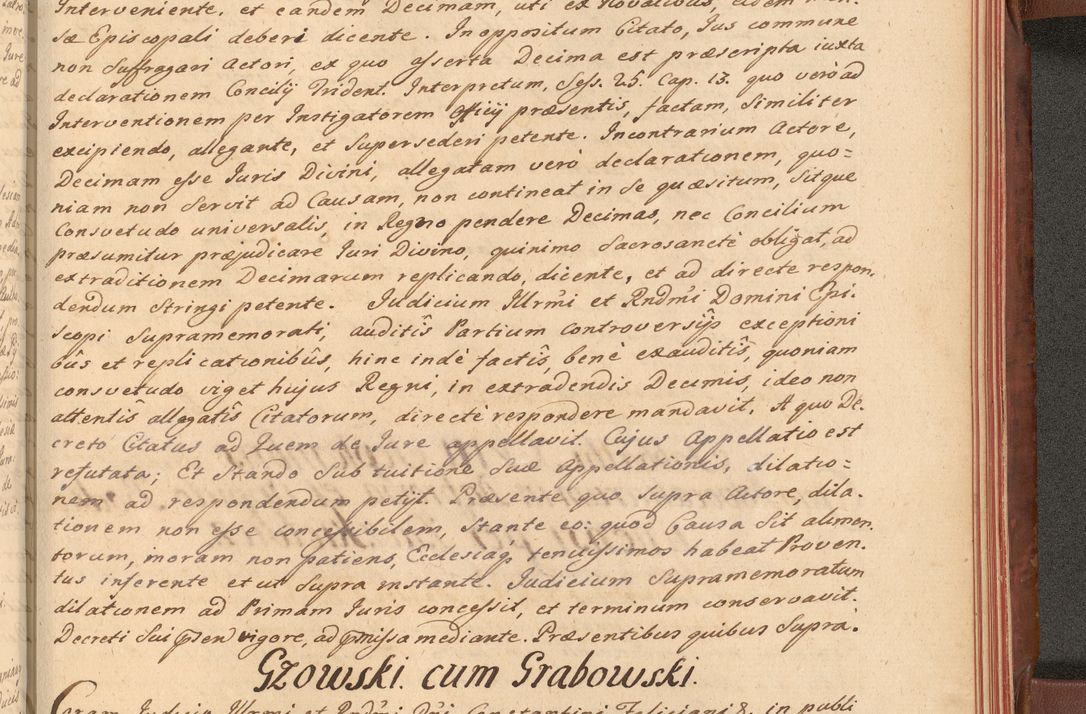 Interveniente, et eandem Decimam, uti ex Novalibus, eidem Men-
sæ Episcopali deberi dicente. In oppositum Citato, Jus commune
non suffragari Actori, ex quo asserta Decima est præscripta iuxta
declarationem Concilij Trident. Interpretum, Sess. 25. Cap. 13. quo verò ad
Interventionem per Instigatorem Officij præsentis, factam, similiter
excipiendo, allegante, et Supersederi petente. Incontrarium Actore,
Decimam esse Juris Divini, allegatam verò declarationem, quo=
niam non servit ad Causam, non contineat in se quæsitum, sitque
Consvetudo universalis, in Regno pendere Decimas, nec Concilium
præsumitur præjudicare Juri Divino, quinimo Sacrosanctè obligat, ad
extraditionem Decimarum replicando, dicente, et ad directe respon,
dendum stringi petente. Judicium Illrmi et Rndmi Domini Epi.
scopi Supramemorati, auditîs Partium controversijs exceptioni
bûs et replicationibûs, hinc indè factîs, benè exauditîs, quoniam
consvetudo viget hujus Regni, in extradendis Decimis, ideo non
attentis allegatîs Citatorum, directè respondere mandavit. A quo De.
creto Citatus ad Quem de Jure appellavit. Cujus Appellatio est
refutata; Et Stando Sub tuitione Suæ Appellationis, dilatio=
nem ad respondendum petijt. Præsente quo supra Actore, dila.
tionem non esse concessibilem, stante eo: quod Causa sit alimen.
torum, moram non patiens, Ecclesiaq, tenuissimos habeat Proven.
tus inferente et ut supra instante. Judicium Supramemoratum
dilationem ad Primam Juris concessit, et terminum conservavit.
Decreti Sui psen vigore, ad pmissa mediante. Præsentibus quibus Supra.
Gzowski. cum Grabowski.
Coram Judicio Illrmi et Rndmi Dni Constantini Feliciani &. in publi